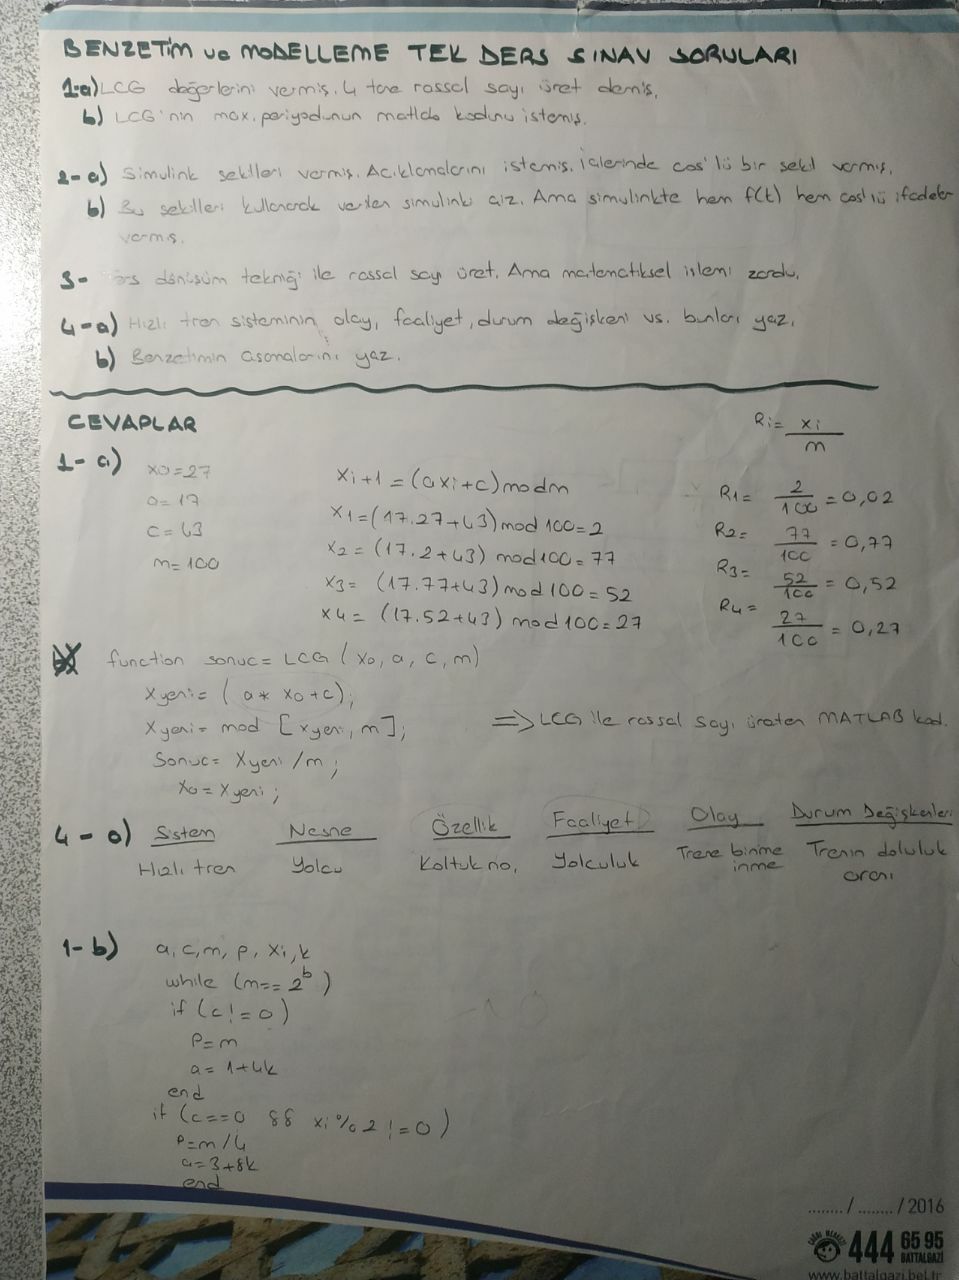 BENZETİM ve MODELLEME TEK DERS SINAV SORULARI
1-a) LCG değerlerini vermiş. 4 tane rassal sayı üret demiş.
b) LCG'nin max. periyodunun matlab kodunu istemiş.
2-a) Simulink şekilleri vermiş. Açıklamalarını istemiş. İçlerinde cos'lü bir şekil vermiş.
b) Bu şekilleri kullanarak verilen simulinki çiz. Ama simulinkte hem f(t) hem cos'lü ifadeler
vermiş.
3- Ters dönüşüm tekniği ile rassal sayı üret. Ama matematiksel işlemi zordu.
4-a) Hızlı tren sisteminin olay, faaliyet, durum değişkeni vs. bunları yaz.
b) Benzetimin aşamalarını yaz.
CEVAPLAR
Ri = xi / m
1-a)
x0 = 27
a = 17
c = 43
m = 100
Xi+1 = (axi+c) mod m
X1 = (17.27+43) mod 100 = 2
X2 = (17.2+43) mod 100 = 77
X3 = (17.77+43) mod 100 = 52
X4 = (17.52+43) mod 100 = 27
R1 = 2/100 = 0,02
R2 = 77/100 = 0,77
R3 = 52/100 = 0,52
R4 = 27/100 = 0,27
function sonuc = LCG (x0, a, c, m)
Xyeni = (a * x0 + c);
Xyeni = mod [xyeni, m];
Sonuc = Xyeni / m;
X0 = Xyeni;
=> LCG ile rassal sayı üreten MATLAB kod.
4-a) Sistem Nesne Özellik Faaliyet Olay Durum Değişkenleri
Hızlı tren Yolcu Koltuk no, Yolculuk Trene binme Trenin doluluk
inme oranı
1-b) a, c, m, p, xi, k
while (m == 2^b)
if (c != 0)
P = m
a = 1+4k
end
if (c == 0 && xi % 2 != 0)
P = m / 4
a = 3+8k
end
......../......../2016
ÇAĞRI MERKEZİ
444 65 95
BATTALGAZİ
www.battalgazi.bel.tr